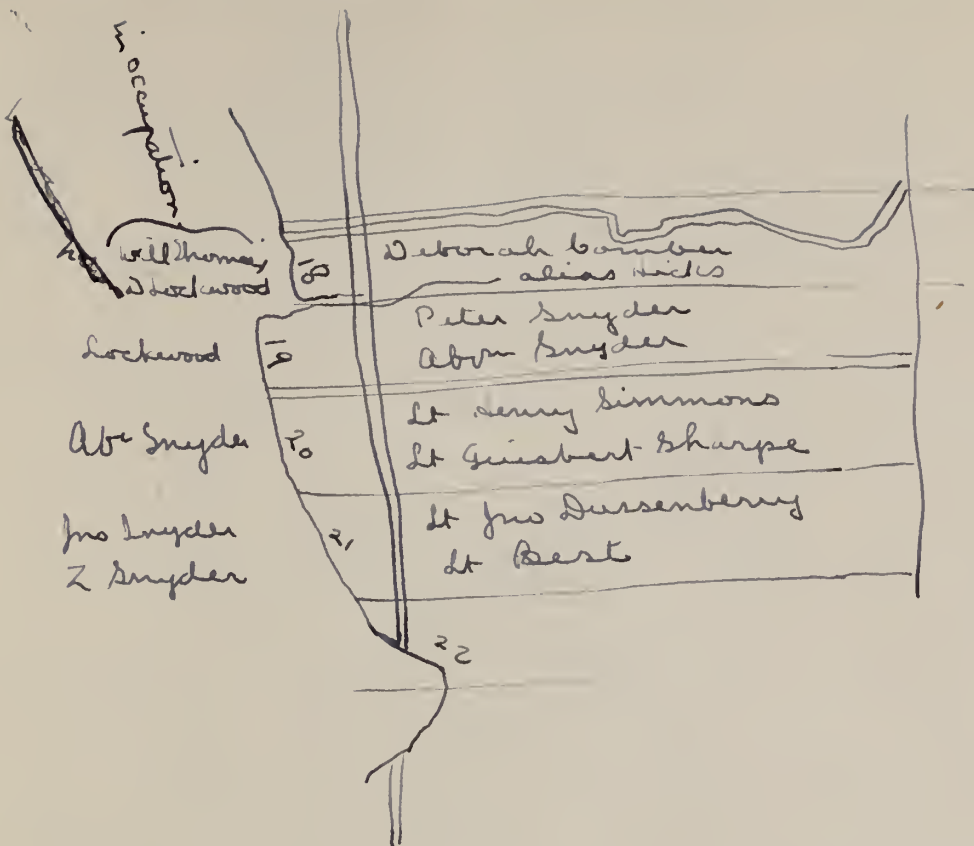 in occupation
Will Thomas
D Lockwood
18
Deborah Comber
alias Hicks
Lockwood
19
Peter Snyder
Abm Snyder
Abr Snyder
20
Lt Henry Simmons
Lt Guisbert Sharpe
Jno Snyder
Z Snyder
21
Lt Jno Dussenberry
Lt Best
22